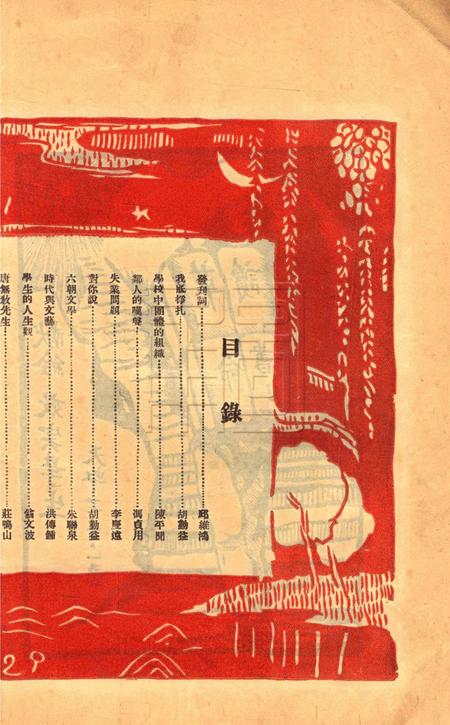 目錄
發刊詞……邱維鴻
我底掙扎……胡勤益
學校中團體的組織……陳平開
鄰人的嘆聲……馮貞用
失業問題……李慶遠
對你說……胡勤益
六朝文學……朱聯泉
時代與文藝……洪傳鍾
學生的人生觀……翁文波
唐無敵先生……莊鳴山
29